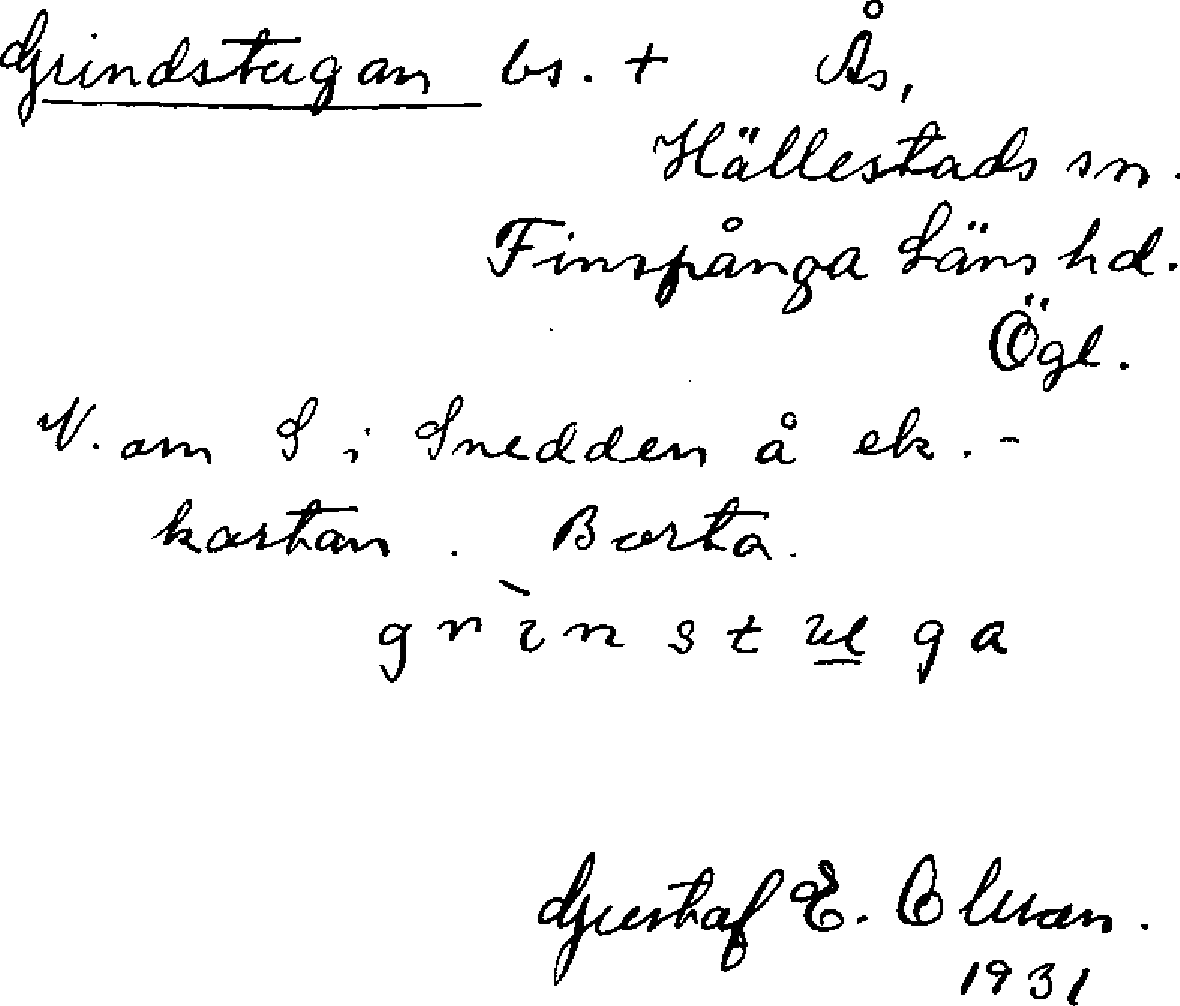 Grindstugan bs. + Ås,
Hällestads sn.
Finspånga läns hd.
Ögl.
N. om S i Snedden å ek.-
kartan. Borta.
grìnstuga
Gustaf E. Olsson.
1931